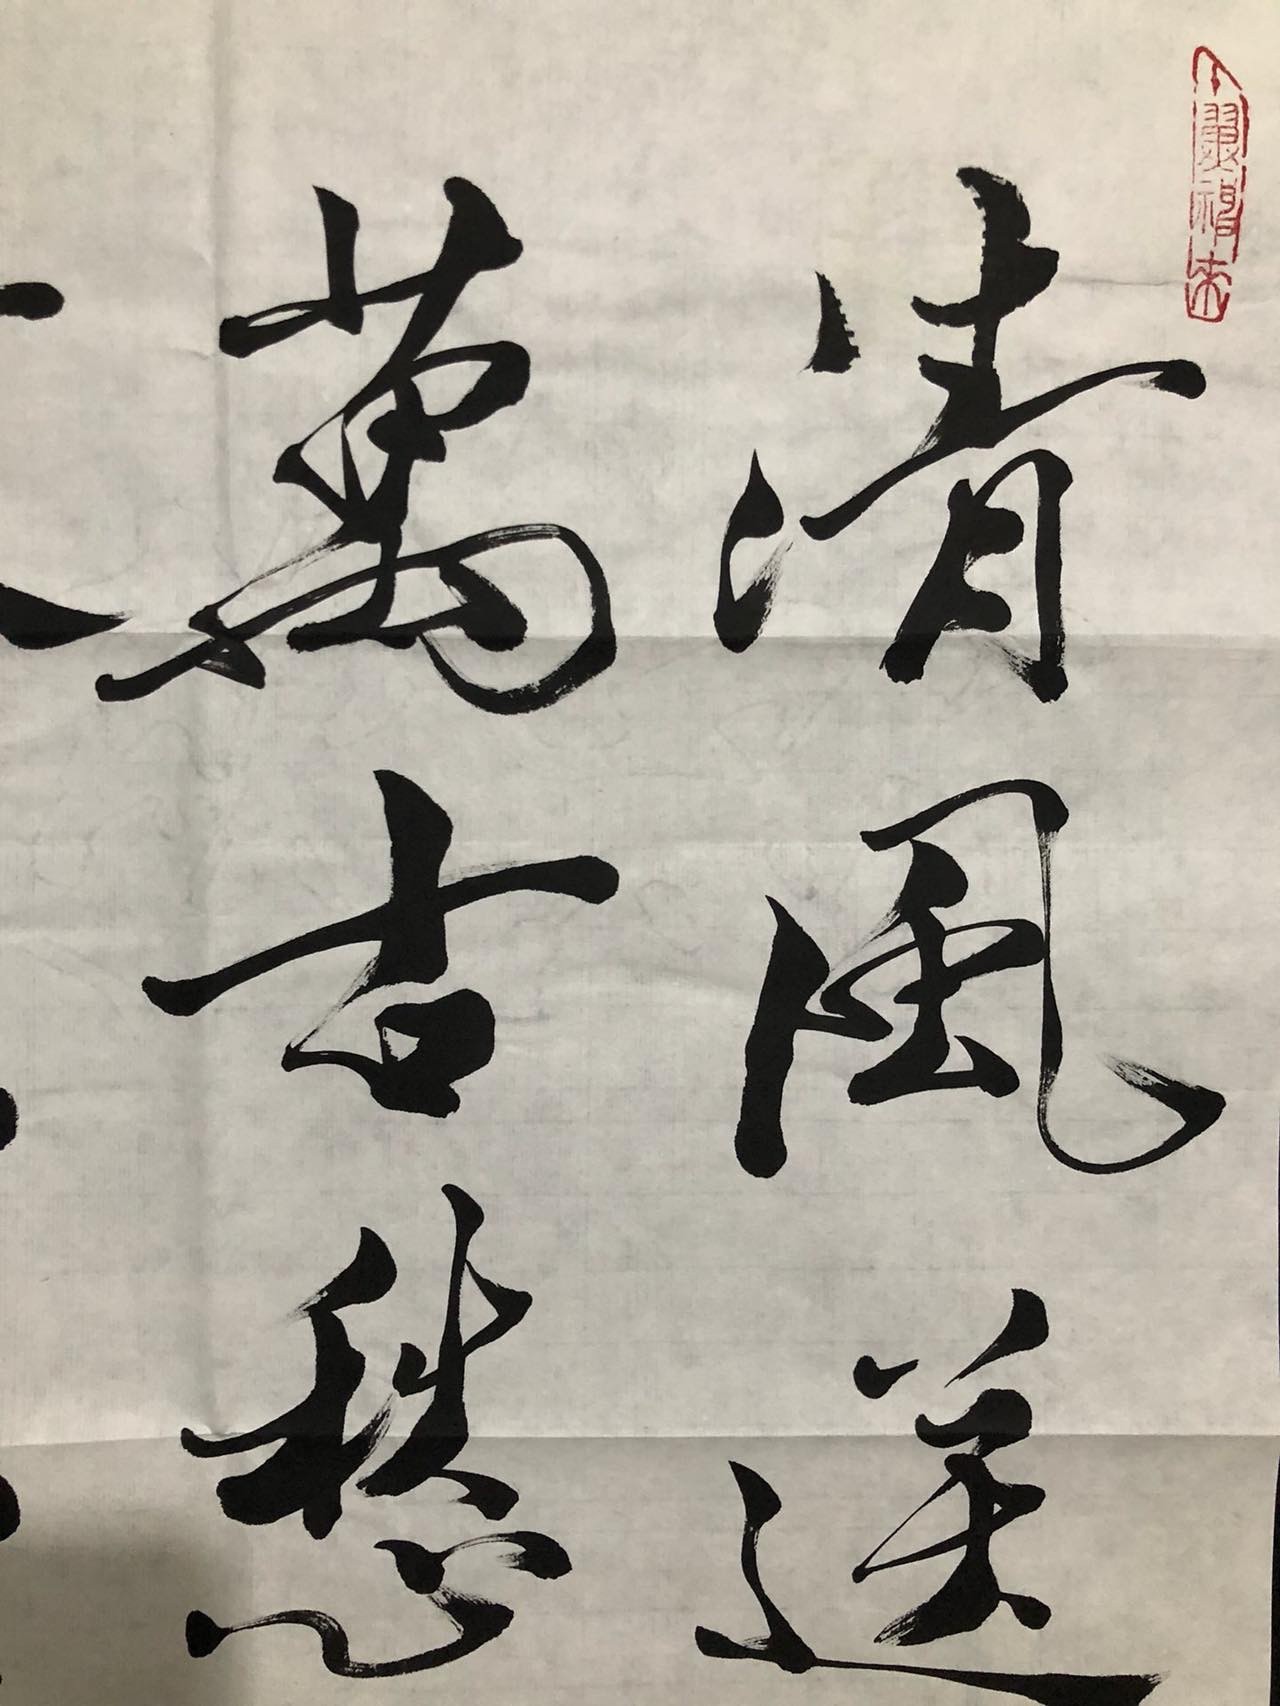 清風送
萬古愁